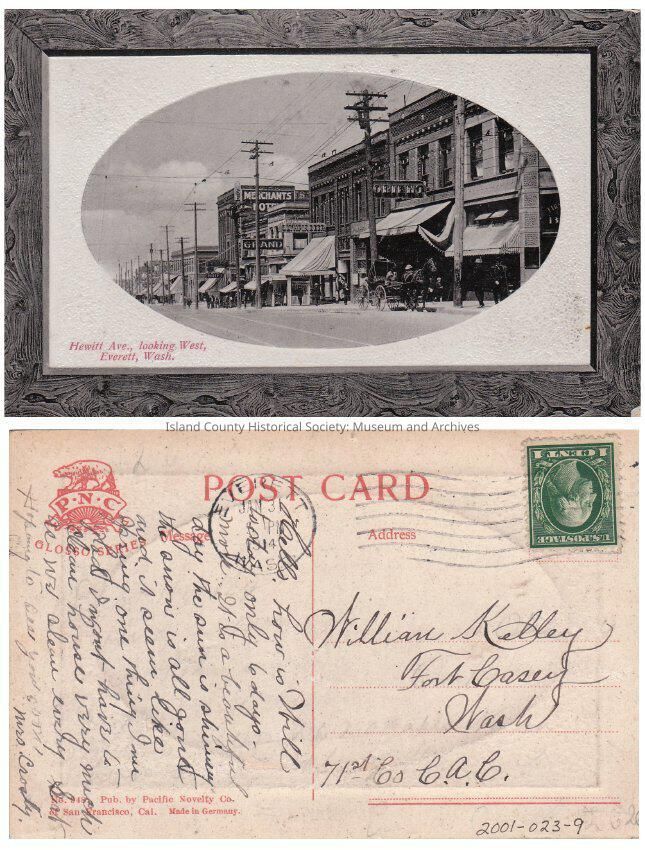 MERCHANTS
GRAND
Hewitt Ave., looking West,
Everett, Wash.
Island County Historical Society: Museum and Archives
POST CARD
P·N·C
GLOSSO SERIES
Message
Address
1 CENT 1
U.S. POSTAGE
EVERETT
Hallo how is Will
today only 6 days-
more. It is a beautiful
day the sun is shining
the snow is all gone
and it seem like
spring one thing I me
glad I wont have to
clean house very much
So will
Hoping to see you soon,
Mrs Crosby.
William Kelley
Fort Casey
Wash
71st Co C.A.C.
Pub. by Pacific Novelty Co.
of San Francisco, Cal. Made in Germany.
2001-023-9